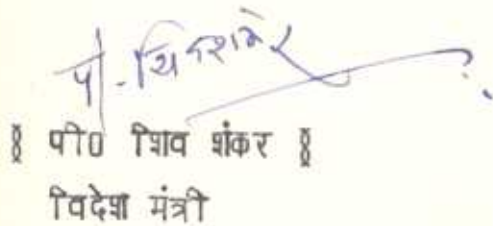 पी. शिवशंकर
§ पी0 शिव शंकर §
विदेश मंत्री